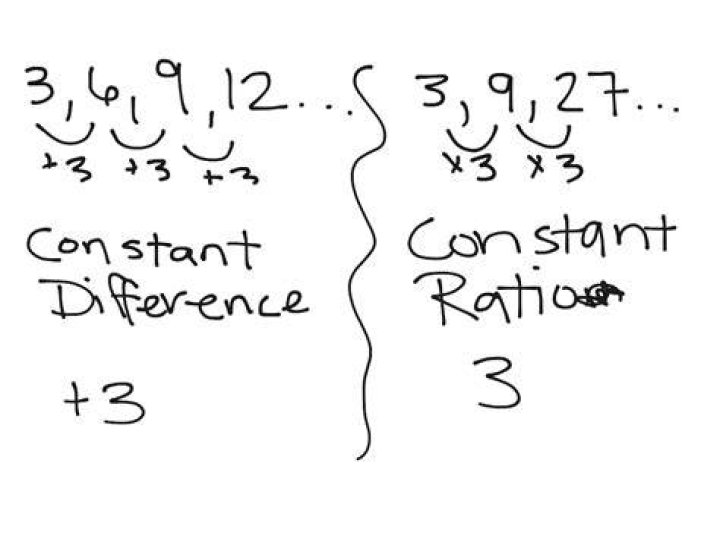 3, 6, 9, 12...
+3 +3 +3
Constant
Difference
+3
3, 9, 27...
x3 x3
Constant
Ratio
3